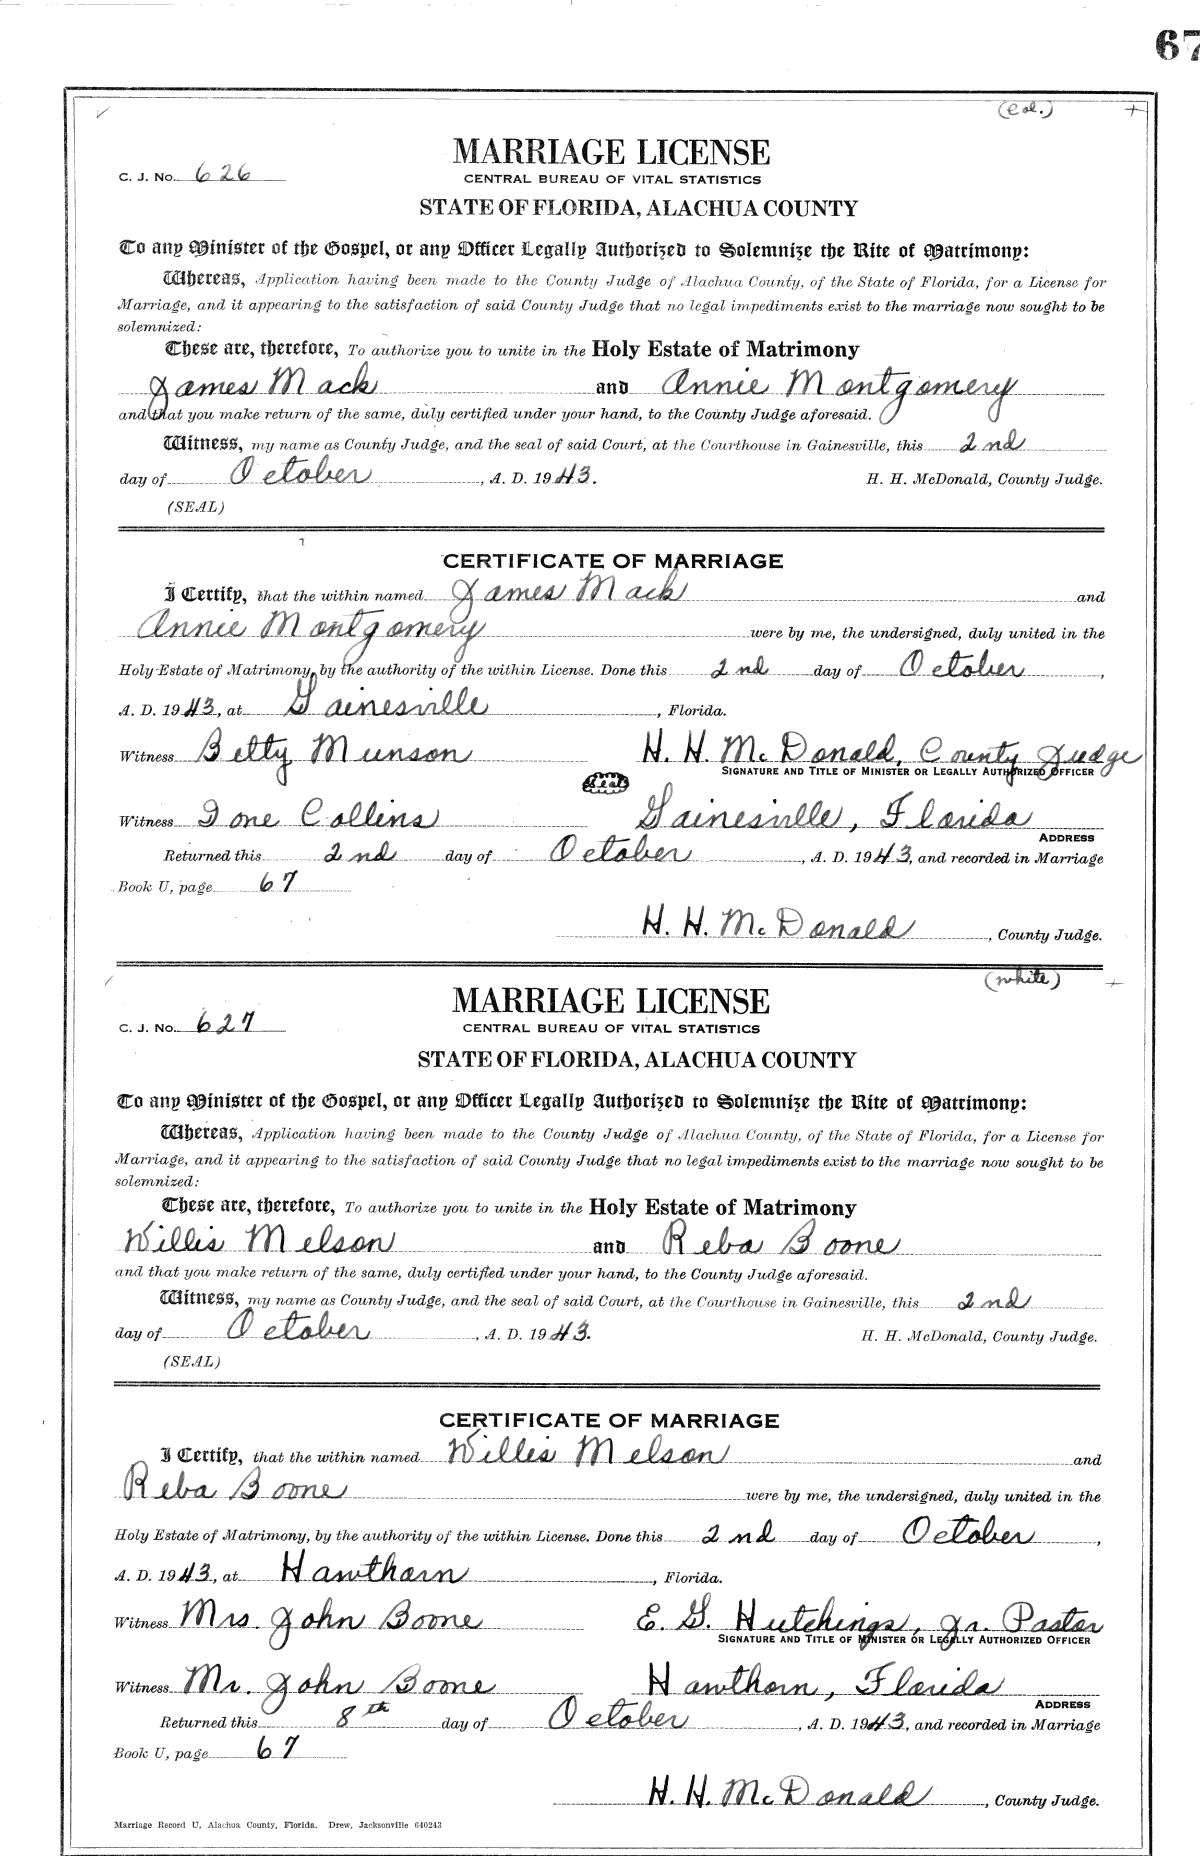 67
(Col.)
MARRIAGE LICENSE
C. J. No. 626
CENTRAL BUREAU OF VITAL STATISTICS
STATE OF FLORIDA, ALACHUA COUNTY
To any Minister of the Gospel, or any Officer Legally Authorized to Solemnize the Rite of Matrimony:
Whereas, Application having been made to the County Judge of Alachua County, of the State of Florida, for a License for
Marriage, and it appearing to the satisfaction of said County Judge that no legal impediments exist to the marriage now sought to be
solemnized:
These are, therefore, To authorize you to unite in the Holy Estate of Matrimony
James Mack and Annie Montgomery
and that you make return of the same, duly certified under your hand, to the County Judge aforesaid.
Witness, my name as County Judge, and the seal of said Court, at the Courthouse in Gainesville, this 2nd
day of October, A. D. 1943. H. H. McDonald, County Judge.
(SEAL)
CERTIFICATE OF MARRIAGE
I Certify, that the within named James Mack and
Annie Montgomery were by me, the undersigned, duly united in the
Holy Estate of Matrimony, by the authority of the within License. Done this 2nd day of October,
A. D. 1943, at Gainesville, Florida.
Witness Betty Munson H. H. McDonald, County Judge
SIGNATURE AND TITLE OF MINISTER OR LEGALLY AUTHORIZED OFFICER
Seal
Witness Ione Collins Gainesville, Florida
ADDRESS
Returned this 2nd day of October, A. D. 1943, and recorded in Marriage
Book U, page 67
H. H. McDonald, County Judge.
(white)
MARRIAGE LICENSE
C. J. No. 627
CENTRAL BUREAU OF VITAL STATISTICS
STATE OF FLORIDA, ALACHUA COUNTY
To any Minister of the Gospel, or any Officer Legally Authorized to Solemnize the Rite of Matrimony:
Whereas, Application having been made to the County Judge of Alachua County, of the State of Florida, for a License for
Marriage, and it appearing to the satisfaction of said County Judge that no legal impediments exist to the marriage now sought to be
solemnized:
These are, therefore, To authorize you to unite in the Holy Estate of Matrimony
Willis Melson and Reba Boone
and that you make return of the same, duly certified under your hand, to the County Judge aforesaid.
Witness, my name as County Judge, and the seal of said Court, at the Courthouse in Gainesville, this 2nd
day of October, A. D. 1943. H. H. McDonald, County Judge.
(SEAL)
CERTIFICATE OF MARRIAGE
I Certify, that the within named Willis Melson and
Reba Boone were by me, the undersigned, duly united in the
Holy Estate of Matrimony, by the authority of the within License. Done this 2nd day of October,
A. D. 1943, at Hawthorn, Florida.
Witness Mrs. John Boone E. G. Hutchings, Jr. Pastor
SIGNATURE AND TITLE OF MINISTER OR LEGALLY AUTHORIZED OFFICER
Witness Mr. John Boone Hawthorn, Florida
ADDRESS
Returned this 8th day of October, A. D. 1943, and recorded in Marriage
Book U, page 67
H. H. McDonald, County Judge.
Marriage Record U, Alachua County, Florida. Drew, Jacksonville 640243